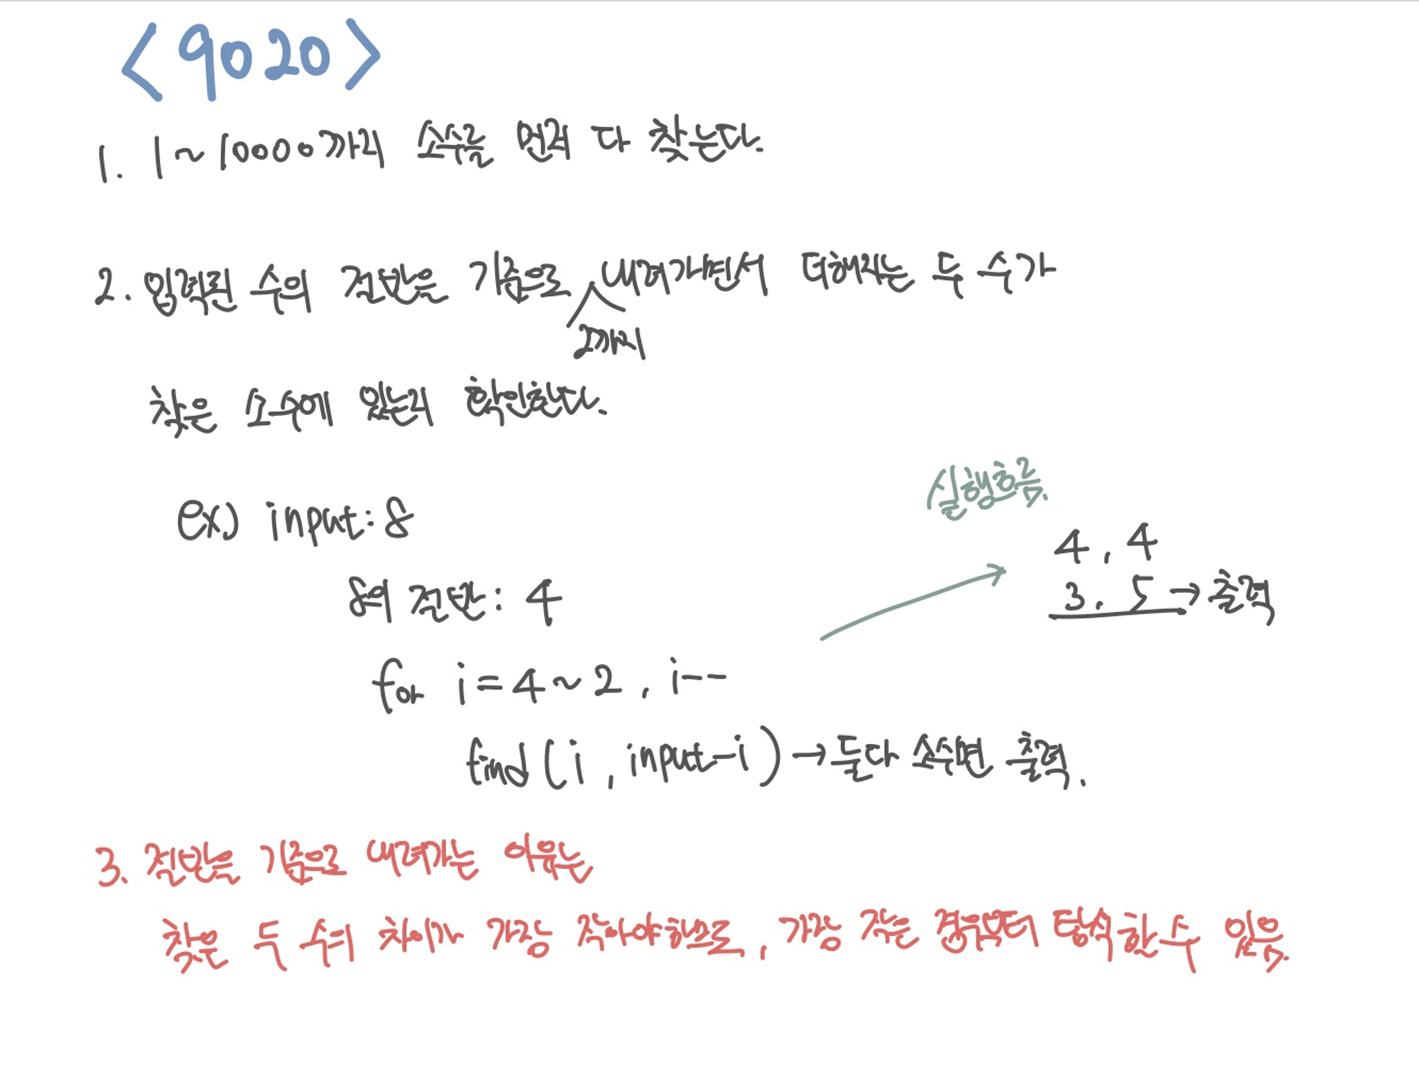 <9020>
1. 1~10000까지 소수를 먼저 다 찾는다.
2. 입력된 수의 절반을 기준으로 내려가면서 더해지는 두 수가
2까지
찾은 소수에 있는지 확인한다.
실행흐름.
ex) input: 8
4, 4
8의 절반: 4
3, 5 → 출력
for i = 4 ~ 2, i--
find(i, input-i) → 둘다 소수면 출력.
3. 절반을 기준으로 내려가는 이유는
찾은 두 수의 차이가 가장 작아야하므로, 가장 작은 경우부터 탐색할 수 있음.